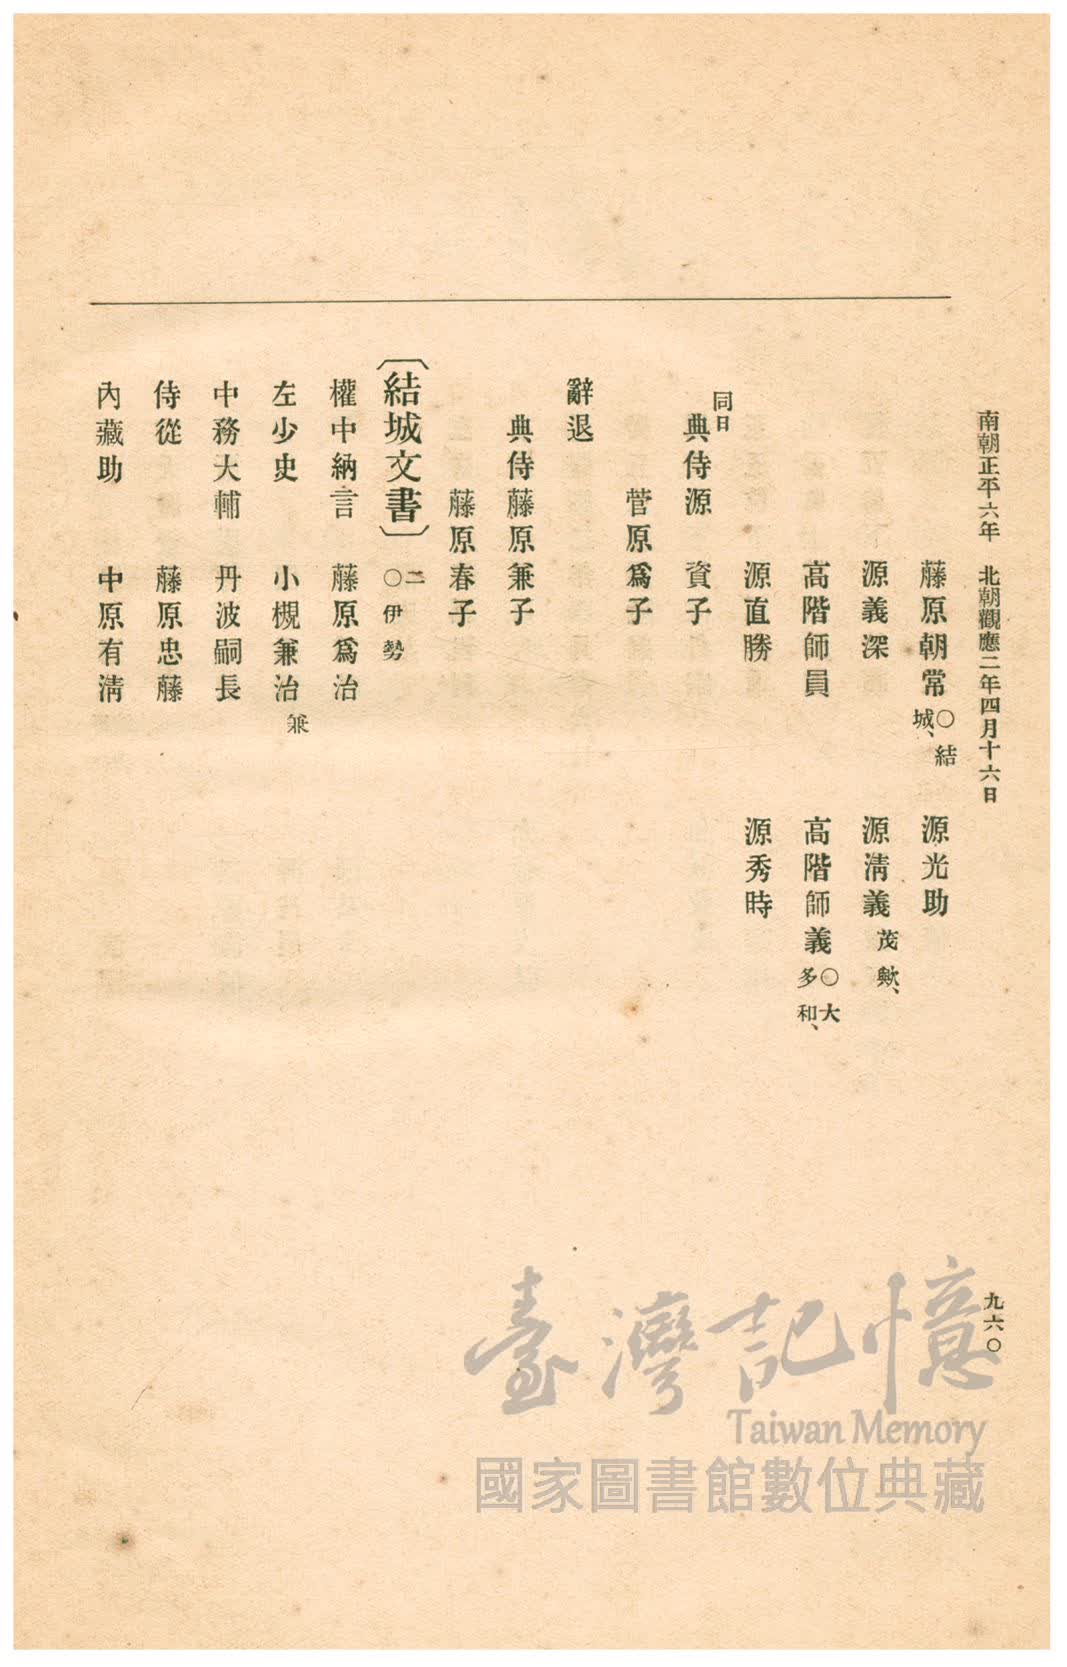 南朝正平六年　北朝觀應二年四月十六日　九六〇
藤原朝常〇結城、　源光助
源義深　源淸義茂歟、
高階師員　高階師義〇大和、多
源直勝　源秀時
同日
典侍源　資子
菅原爲子
辭退
典侍藤原兼子
藤原春子
〔結城文書〕〇二伊勢
權中納言　藤原爲治
左少史　小槻兼治兼
中務大輔　丹波嗣長
侍從　藤原忠藤
內藏助　中原有淸
臺灣記憶
Taiwan Memory
國家圖書館數位典藏